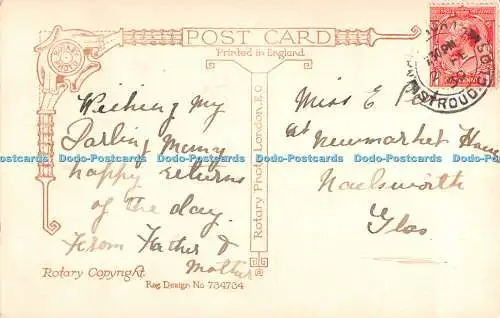 POST CARD
Printed in England
ROTARY PHOTO
Wishing My
Darling Many
happy returns
of the day.
From Father &
Mother
Rotary Photo, London, E.C.
Miss E P
at Newmarket
Nailsworth
Glos
STROUD
Dodo-Postcards Dodo-Postcards Dodo-Postcards Dodo-Postcards Dodo-Postcards
Rotary Copyright.
Reg. Design No 734734